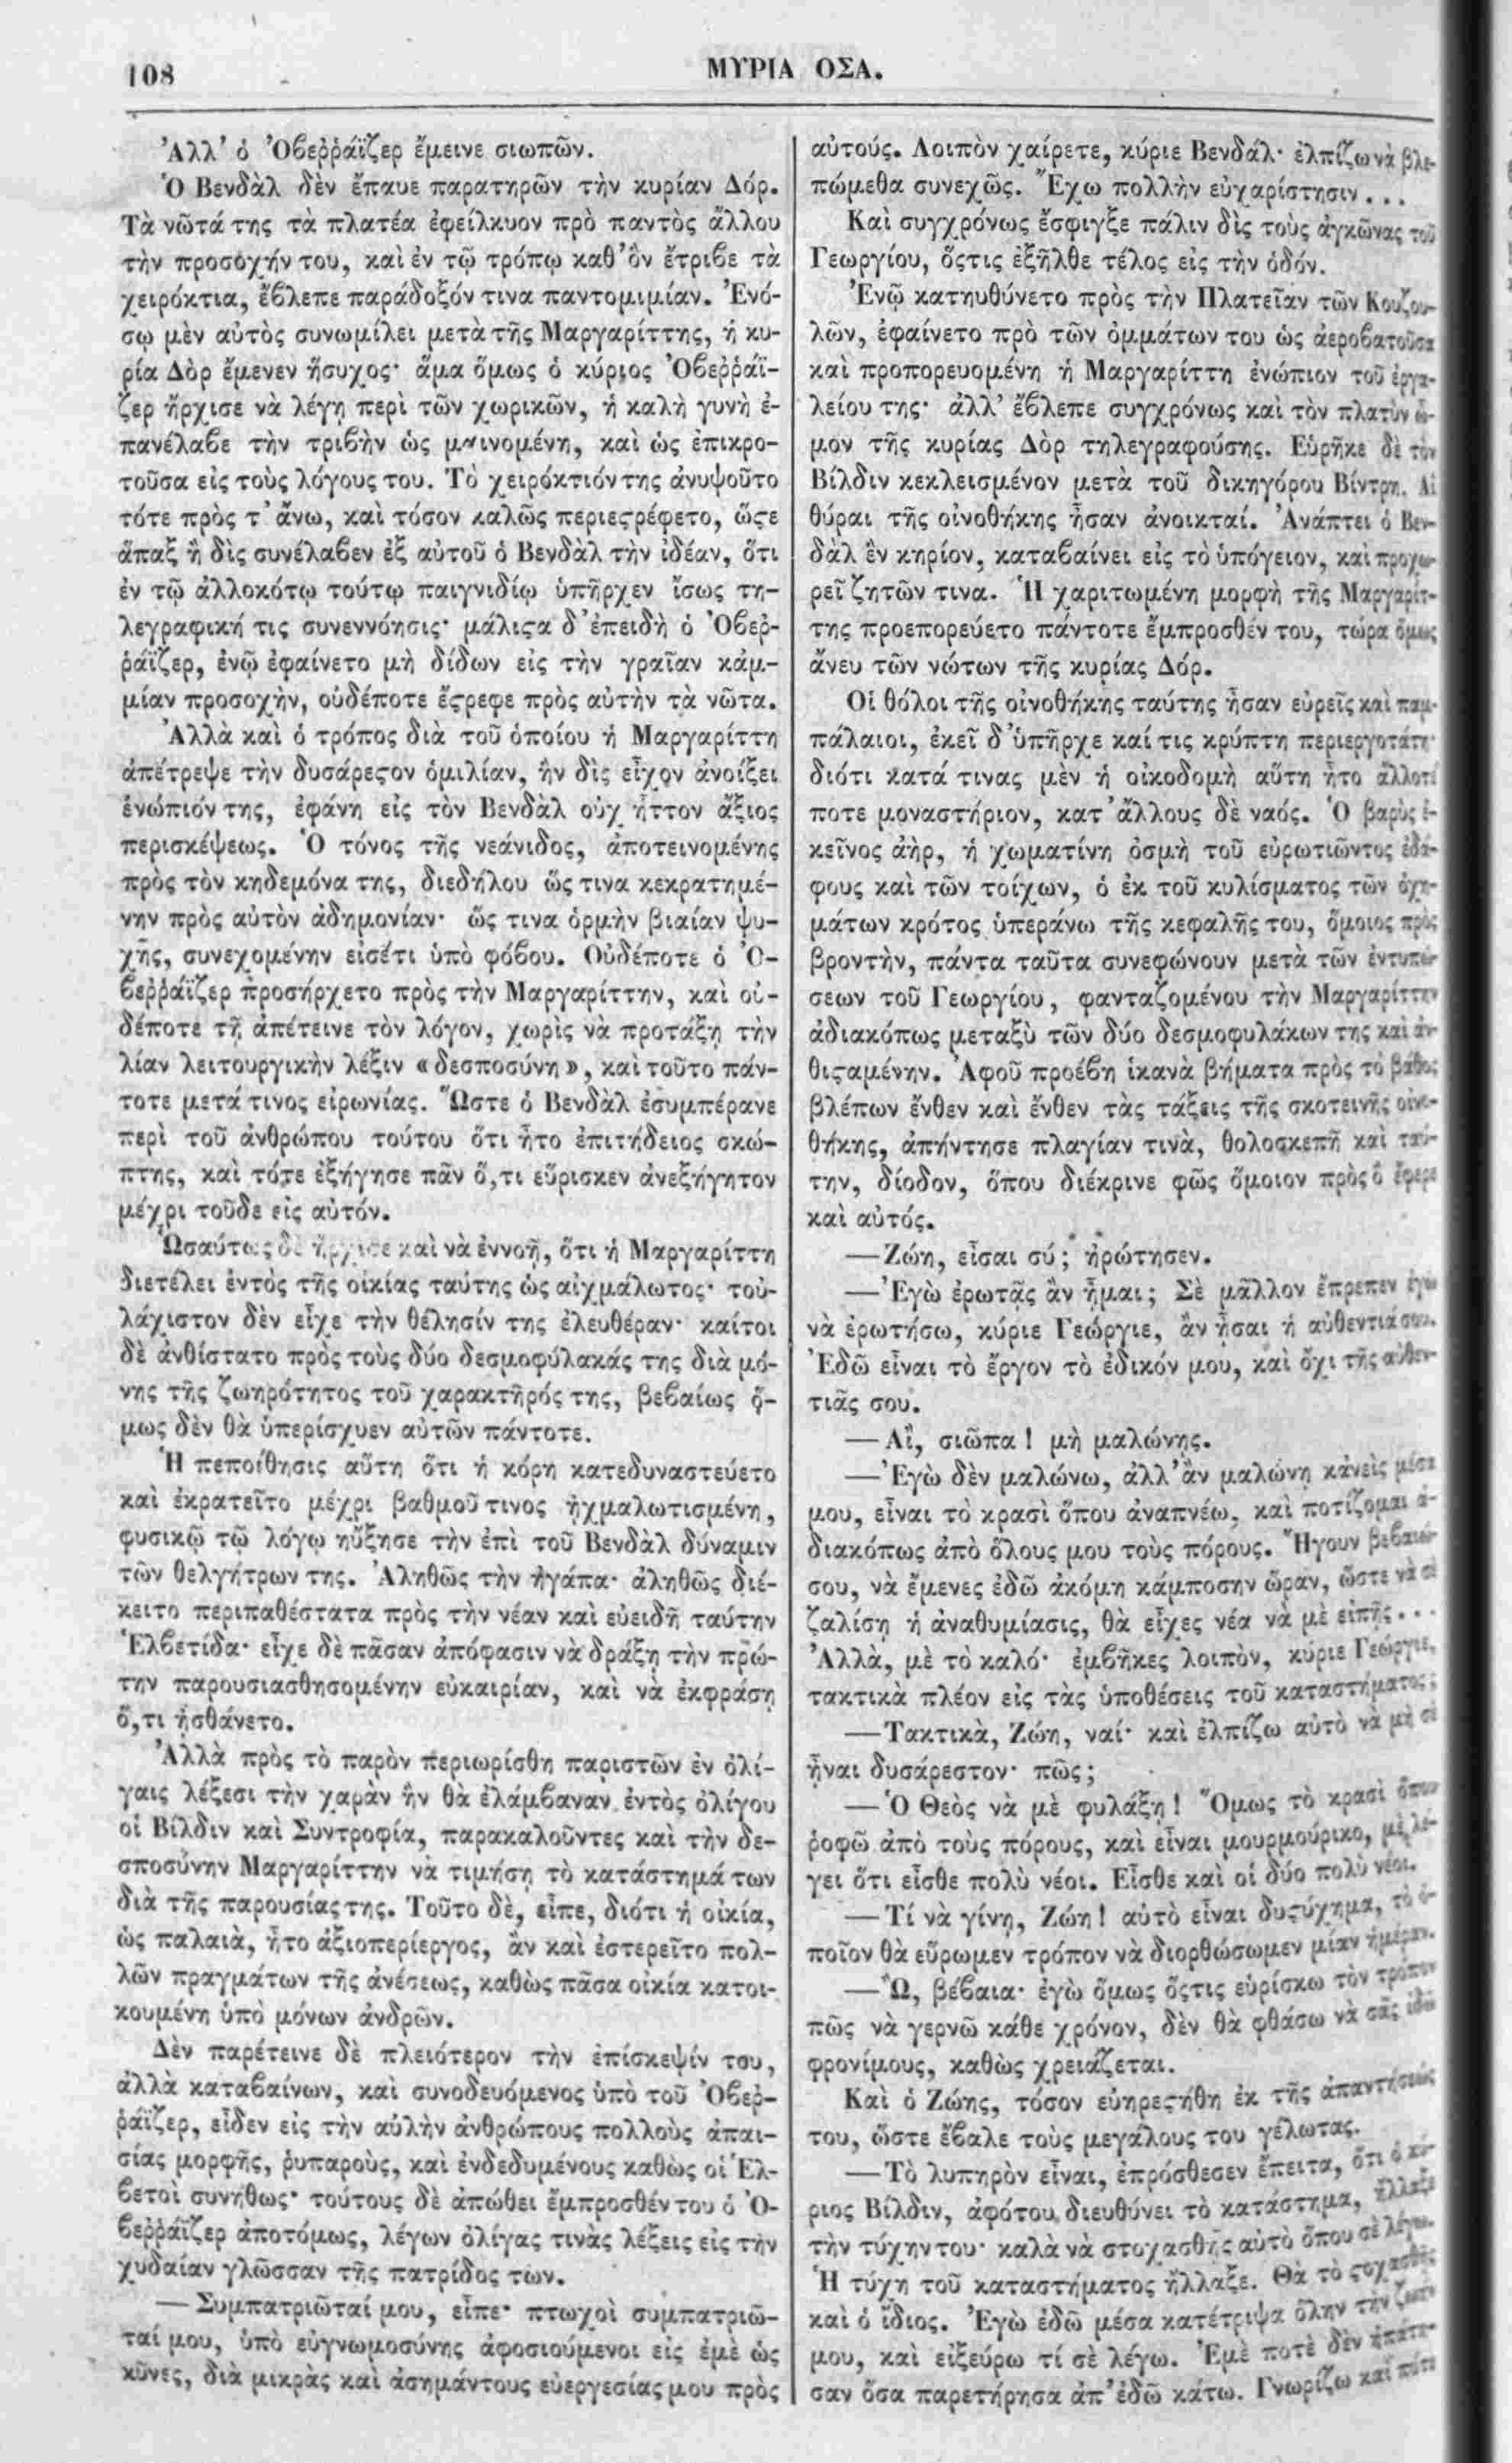 108
ΜΥΡΙΑ ΟΣΑ.
Ἀλλ' ὁ Ὀβεῤῥάϊζερ ἔμεινε σιωπῶν.
Ὁ Βενδὰλ δὲν ἔπαυε παρατηρῶν τὴν κυρίαν Δόρ.
Τὰ νῶτά της τὰ πλατέα ἐφείλκυον πρὸ παντὸς ἄλλου
τὴν προσοχήν του, καὶ ἐν τῷ τρόπῳ καθ' ὃν ἔτριβε τὰ
χειρόκτια, ἔβλεπε παράδοξόν τινα παντομιμίαν. Ἐνό-
σῳ μὲν αὐτὸς συνωμίλει μετὰ τῆς Μαργαρίττης, ἡ κυ-
ρία Δὸρ ἔμενεν ἥσυχος· ἅμα ὅμως ὁ κύριος Ὀβεῤῥάϊ-
ζερ ἤρχισε νὰ λέγῃ περὶ τῶν χωρικῶν, ἡ καλὴ γυνὴ ἐ-
πανέλαβε τὴν τριβὴν ὡς μαινομένη, καὶ ὡς ἐπικρο-
τοῦσα εἰς τοὺς λόγους του. Τὸ χειρόκτιόν της ἀνυψοῦτο
τότε πρὸς τ' ἄνω, καὶ τόσον καλῶς περιεϛρέφετο, ὥϛε
ἅπαξ ἢ δὶς συνέλαβεν ἐξ αὐτοῦ ὁ Βενδὰλ τὴν ἰδέαν, ὅτι
ἐν τῷ ἀλλοκότῳ τούτῳ παιγνιδίῳ ὑπῆρχεν ἴσως τη-
λεγραφική τις συνεννόησις· μάλιϛα δ' ἐπειδὴ ὁ Ὀβεῤ-
ῥάϊζερ, ἐνῷ ἐφαίνετο μὴ δίδων εἰς τὴν γραῖαν κάμ-
μίαν προσοχὴν, οὐδέποτε ἔϛρεφε πρὸς αὐτὴν τὰ νῶτα.
Ἀλλὰ καὶ ὁ τρόπος διὰ τοῦ ὁποίου ἡ Μαργαρίττη
ἀπέτρεψε τὴν δυσάρεϛον ὁμιλίαν, ἣν δὶς εἶχον ἀνοίξει
ἐνώπιόν της, ἐφάνη εἰς τὸν Βενδὰλ οὐχ ἧττον ἄξιος
περισκέψεως. Ὁ τόνος τῆς νεάνιδος, ἀποτεινομένης
πρὸς τὸν κηδεμόνα της, διεδήλου ὥς τινα κεκρατημέ-
νην πρὸς αὐτὸν ἀδημονίαν· ὥς τινα ὁρμὴν βιαίαν ψυ-
χῆς, συνεχομένην εἰσέτι ὑπὸ φόβου. Οὐδέποτε ὁ Ὀ-
βεῤῥάϊζερ προσήρχετο πρὸς τὴν Μαργαρίττην, καὶ οὐ-
δέποτε τῇ ἀπέτεινε τὸν λόγον, χωρὶς νὰ προτάξῃ τὴν
λίαν λειτουργικὴν λέξιν « δεσποσύνη », καὶ τοῦτο πάν-
τοτε μετά τινος εἰρωνίας. Ὥστε ὁ Βενδὰλ ἐσυμπέρανε
περὶ τοῦ ἀνθρώπου τούτου ὅτι ἦτο ἐπιτήδειος σκώ-
πτης, καὶ τότε ἐξήγησε πᾶν ὅ,τι εὕρισκεν ἀνεξήγητον
μέχρι τοῦδε εἰς αὐτόν.
Ὡσαύτως δὲ ἤρχισε καὶ νὰ ἐννοῇ, ὅτι ἡ Μαργαρίττη
διετέλει ἐντὸς τῆς οἰκίας ταύτης ὡς αἰχμάλωτος· τοὐ-
λάχιστον δὲν εἶχε τὴν θέλησίν της ἐλευθέραν· καίτοι
δὲ ἀνθίστατο πρὸς τοὺς δύο δεσμοφύλακάς της διὰ μό-
νης τῆς ζωηρότητος τοῦ χαρακτῆρός της, βεβαίως ὅ-
μως δὲν θὰ ὑπερίσχυεν αὐτῶν πάντοτε.
Ἡ πεποίθησις αὕτη ὅτι ἡ κόρη κατεδυναστεύετο
καὶ ἐκρατεῖτο μέχρι βαθμοῦ τινος ᾐχμαλωτισμένη,
φυσικῷ τῷ λόγῳ ηὔξησε τὴν ἐπὶ τοῦ Βενδὰλ δύναμιν
τῶν θελγήτρων της. Ἀληθῶς τὴν ἠγάπα· ἀληθῶς διέ-
κειτο περιπαθέστατα πρὸς τὴν νέαν καὶ εὐειδῆ ταύτην
Ἑλβετίδα· εἶχε δὲ πᾶσαν ἀπόφασιν νὰ δράξῃ τὴν πρώ-
την παρουσιασθησομένην εὐκαιρίαν, καὶ νὰ ἐκφράσῃ
ὅ,τι ᾐσθάνετο.
Ἀλλὰ πρὸς τὸ παρὸν περιωρίσθη παριστῶν ἐν ὀλί-
γαις λέξεσι τὴν χαρὰν ἣν θὰ ἐλάμβαναν ἐντὸς ὀλίγου
οἱ Βίλδιν καὶ Συντροφία, παρακαλοῦντες καὶ τὴν δε-
σποσύνην Μαργαρίττην νὰ τιμήσῃ τὸ κατάστημά των
διὰ τῆς παρουσίας της. Τοῦτο δὲ, εἶπε, διότι ἡ οἰκία,
ὡς παλαιὰ, ἦτο ἀξιοπερίεργος, ἂν καὶ ἐστερεῖτο πολ-
λῶν πραγμάτων τῆς ἀνέσεως, καθὼς πᾶσα οἰκία κατοι-
κουμένη ὑπὸ μόνων ἀνδρῶν.
Δὲν παρέτεινε δὲ πλειότερον τὴν ἐπίσκεψίν του,
ἀλλὰ καταβαίνων, καὶ συνοδευόμενος ὑπὸ τοῦ Ὀβεῤ-
ῥάϊζερ, εἶδεν εἰς τὴν αὐλὴν ἀνθρώπους πολλοὺς ἀπαι-
σίας μορφῆς, ῥυπαροὺς, καὶ ἐνδεδυμένους καθὼς οἱ Ἑλ-
βετοὶ συνήθως· τούτους δὲ ἀπώθει ἔμπροσθέν του ὁ Ὀ-
βεῤῥάϊζερ ἀποτόμως, λέγων ὀλίγας τινὰς λέξεις εἰς τὴν
χυδαίαν γλῶσσαν τῆς πατρίδος των.
— Συμπατριῶταί μου, εἶπε· πτωχοὶ συμπατριῶ-
ταί μου, ὑπὸ εὐγνωμοσύνης ἀφοσιούμενοι εἰς ἐμὲ ὡς
κῦνες, διὰ μικρὰς καὶ ἀσημάντους εὐεργεσίας μου πρὸς
αὐτούς. Λοιπὸν χαίρετε, κύριε Βενδάλ· ἐλπίζω νὰ βλε-
πώμεθα συνεχῶς. Ἔχω πολλὴν εὐχαρίστησιν...
Καὶ συγχρόνως ἔσφιγξε πάλιν δὶς τοὺς ἀγκῶνας τοῦ
Γεωργίου, ὅςτις ἐξῆλθε τέλος εἰς τὴν ὁδόν.
Ἐνῷ κατηυθύνετο πρὸς τὴν Πλατεῖαν τῶν Κουζου-
λῶν, ἐφαίνετο πρὸ τῶν ὀμμάτων του ὡς ἀεροβατοῦσα
καὶ προπορευομένη ἡ Μαργαρίττη ἐνώπιον τοῦ ἐργα-
λείου της· ἀλλ' ἔβλεπε συγχρόνως καὶ τὸν πλατὺν ὦ-
μον τῆς κυρίας Δὸρ τηλεγραφούσης. Εὑρῆκε δὲ τὸν
Βίλδιν κεκλεισμένον μετὰ τοῦ δικηγόρου Βίντρη. Αἱ
θύραι τῆς οἰνοθήκης ἦσαν ἀνοικταί. Ἀνάπτει ὁ Βεν-
δὰλ ἓν κηρίον, καταβαίνει εἰς τὸ ὑπόγειον, καὶ προχω-
ρεῖ ζητῶν τινα. Ἡ χαριτωμένη μορφὴ τῆς Μαργαρίτ-
της προεπορεύετο πάντοτε ἔμπροσθέν του, τώρα ὅμως
ἄνευ τῶν νώτων τῆς κυρίας Δόρ.
Οἱ θόλοι τῆς οἰνοθήκης ταύτης ἦσαν εὐρεῖς καὶ παμ-
πάλαιοι, ἐκεῖ δ' ὑπῆρχε καί τις κρύπτη περιεργοτάτη·
διότι κατά τινας μὲν ἡ οἰκοδομὴ αὕτη ἦτο ἄλλοτέ
ποτε μοναστήριον, κατ' ἄλλους δὲ ναός. Ὁ βαρὺς ἐ-
κεῖνος ἀὴρ, ἡ χωματίνη ὀσμὴ τοῦ εὐρωτιῶντος ἐδά-
φους καὶ τῶν τοίχων, ὁ ἐκ τοῦ κυλίσματος τῶν ὀχη-
μάτων κρότος ὑπεράνω τῆς κεφαλῆς του, ὅμοιος πρὸς
βροντὴν, πάντα ταῦτα συνεφώνουν μετὰ τῶν ἐντυπώ-
σεων τοῦ Γεωργίου, φανταζομένου τὴν Μαργαρίττην
ἀδιακόπως μεταξὺ τῶν δύο δεσμοφυλάκων της καὶ ἀν-
θιϛαμένην. Ἀφοῦ προέβη ἱκανὰ βήματα πρὸς τὸ βάθος
βλέπων ἔνθεν καὶ ἔνθεν τὰς τάξεις τῆς σκοτεινῆς οἰνο-
θήκης, ἀπήντησε πλαγίαν τινὰ, θολοσκεπῆ καὶ ταύ-
την, δίοδον, ὅπου διέκρινε φῶς ὅμοιον πρὸς ὃ ἔφερε
καὶ αὐτός.
—Ζώη, εἶσαι σύ; ἠρώτησεν.
—Ἐγὼ ἐρωτᾷς ἂν ἦμαι; Σὲ μᾶλλον ἔπρεπεν ἐγὼ
νὰ ἐρωτήσω, κύριε Γεώργιε, ἂν ἦσαι ἡ αὐθεντιά σου.
Ἐδῶ εἶναι τὸ ἔργον τὸ ἐδικόν μου, καὶ ὄχι τῆς αὐθεν-
τιᾶς σου.
—Αἲ, σιῶπα! μὴ μαλώνῃς.
—Ἐγὼ δὲν μαλώνω, ἀλλ' ἂν μαλώνῃ κἀνεὶς μέσα
μου, εἶναι τὸ κρασὶ ὅπου ἀναπνέω, καὶ ποτίζομαι ἀ-
διακόπως ἀπὸ ὅλους μου τοὺς πόρους. Ἤγουν βεβαιώ-
σου, νὰ ἔμενες ἐδῶ ἀκόμη κάμποσην ὥραν, ὥστε νὰ σὲ
ζαλίσῃ ἡ ἀναθυμίασις, θὰ εἶχες νέα νὰ μὲ εἰπῇς...
Ἀλλὰ, μὲ τὸ καλό· ἐμβῆκες λοιπὸν, κύριε Γεώργιε,
τακτικὰ πλέον εἰς τὰς ὑποθέσεις τοῦ καταστήματος;
—Τακτικὰ, Ζώη, ναί· καὶ ἐλπίζω αὐτὸ νὰ μὴ σὲ
ἦναι δυσάρεστον· πῶς;
—Ὁ Θεὸς νὰ μὲ φυλάξῃ! Ὅμως τὸ κρασὶ ὅπου
ῥοφῶ ἀπὸ τοὺς πόρους, καὶ εἶναι μουρμούρικο, μὲ λέ-
γει ὅτι εἶσθε πολὺ νέοι. Εἶσθε καὶ οἱ δύο πολὺ νέοι.
—Τί νὰ γίνῃ, Ζώη! αὐτὸ εἶναι δυϛύχημα, τὸ ὁ-
ποῖον θὰ εὕρωμεν τρόπον νὰ διορθώσωμεν μίαν ἡμέραν.
—Ὢ, βέβαια· ἐγὼ ὅμως ὅςτις εὑρίσκω τὸν τρόπον
πῶς νὰ γερνῶ κάθε χρόνον, δὲν θὰ φθάσω νὰ σᾶς ἰδῶ
φρονίμους, καθὼς χρειάζεται.
Καὶ ὁ Ζώης, τόσον εὐηρεϛήθη ἐκ τῆς ἀπαντήσεώς
του, ὥστε ἔβαλε τοὺς μεγάλους του γέλωτας.
—Τὸ λυπηρὸν εἶναι, ἐπρόσθεσεν ἔπειτα, ὅτι ὁ κύ-
ριος Βίλδιν, ἀφότου διευθύνει τὸ κατάστημα, ἤλλαξε
τὴν τύχην του· καλὰ νὰ στοχασθῇς αὐτὸ ὅπου σὲ λέγω.
Ἡ τύχη τοῦ καταστήματος ἤλλαξε. Θὰ τὸ ϛοχασθῇς
καὶ ὁ ἴδιος. Ἐγὼ ἐδῶ μέσα κατέτριψα ὅλην τὴν ζωήν
μου, καὶ εἰξεύρω τί σὲ λέγω. Ἐμὲ ποτὲ δὲν ἠπάτη-
σαν ὅσα παρετήρησα ἀπ' ἐδῶ κάτω. Γνωρίζω καὶ πότε